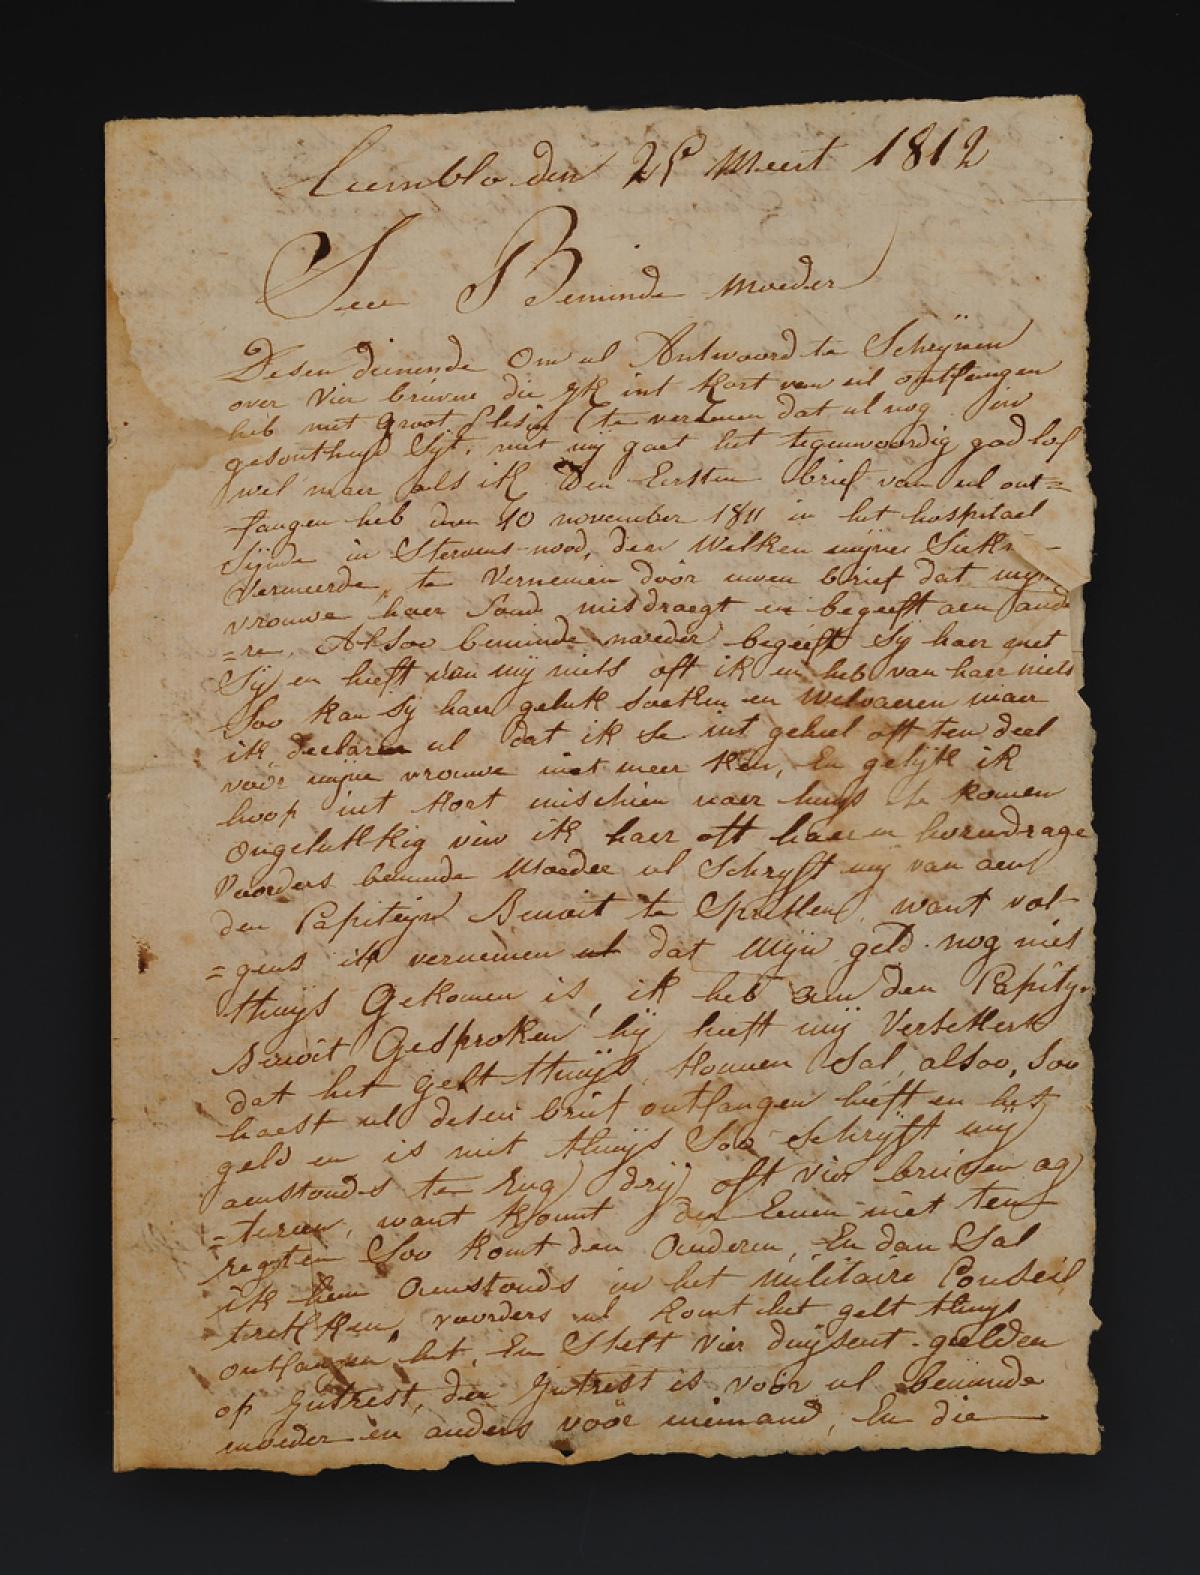 den 25 Meert 1812
See Beminde moeder
Desen dienende om ul Antwoord te Schrijven
over Vier brieven die Ik int kort van ul ontfangen
heb met groot Plesir te vernemen dat ul nog in
gesonthyd Sijt, met mij gaet het tegenwoordig god lof
wel maer als ik den Eersten brief van ul ont=
fangen heb den 10 november 1811 in het hospitael
Sijnde in Stervens nood, den Welken mijne Siekt
Vermeerde, te Vernemen door uwen brief dat mijn
vrouwe haer Soud misdraegt en begeeft aen ande
=re. Alsoo beminde moeder begeeft Sij haer met
Sij en heeft van mij niets oft ik en heb van haer niets
Soo kan Sy haer geluk Soeken en Welvaeren maer
ik declaren ul dat ik Se int geheel oft ten deel
voor mijne vrouwe niet meer Ken, En gelijk ik
hoop int kort mischien naer huys te komen
Ongelukkig vin ik haer oft haeren horendrage
Voorders beminde Moeder ul Schryft mij van aen
den Capiteijn Benoit te Spreken, want vol-
=gens ik vernemen ul dat Mijn geld nog niet
thuijs Gekomen is, ik heb aen den Capity
Benoit Gesproken hij heeft mij Versekert
dat het Gelt thuijs komen Sal, alsoo, Soo
haest ul desen brief ontfangen heeft en het
geld en is niet thuijs Soo Schrijft mij
aenstonds te rug drij oft vier brieven ag
=tereen, want komt den Eenen niet ten
regten Soo komt den Anderen, En dan Sal
ik hem Aenstonds in het militaire Conseil
trekken, voorders ul komt het gelt thuys
ontfangen het, En Stelt Vier duijsent gulden
op Intrest, den Intrest is voor ul beminde
moeder en anders voor niemand, En die